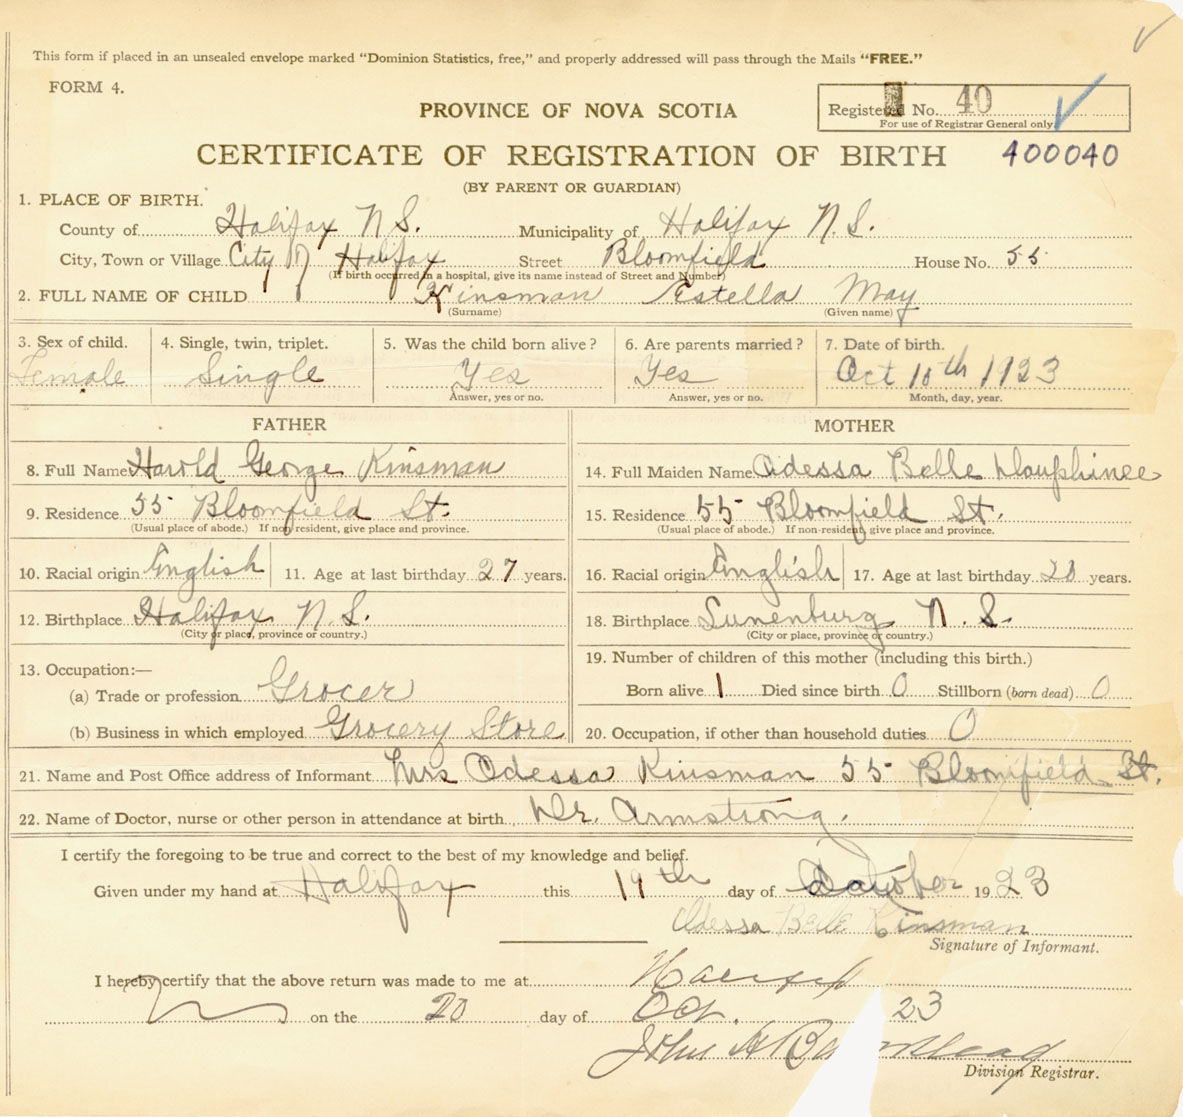 This form if placed in an unsealed envelope marked "Dominion Statistics, free," and properly addressed will pass through the Mails "FREE."
FORM 4.
Registered No. 40
For use of Registrar General only
PROVINCE OF NOVA SCOTIA
CERTIFICATE OF REGISTRATION OF BIRTH 400040
(BY PARENT OR GUARDIAN)
1. PLACE OF BIRTH.
County of Halifax N S. Municipality of Halifax N. S.
City, Town or Village City of Halifax Street Bloomfield House No. 55
(If birth occurred in a hospital, give its name instead of Street and Number)
2. FULL NAME OF CHILD Kinsman Estella May
(Surname) (Given name)
3. Sex of child. 4. Single, twin, triplet. 5. Was the child born alive? 6. Are parents married? 7. Date of birth.
Female Single Yes Yes Oct 10th 1923
Answer, yes or no. Answer, yes or no. Month, day, year.
FATHER MOTHER
8. Full Name Harold George Kinsman 14. Full Maiden Name Odessa Belle Dauphinee
9. Residence 55 Bloomfield St. 15. Residence 55 Bloomfield St.
(Usual place of abode.) If non resident, give place and province. (Usual place of abode.) If non-resident, give place and province.
10. Racial origin English 11. Age at last birthday 27 years. 16. Racial origin English 17. Age at last birthday years.
12. Birthplace Halifax N. S. 18. Birthplace Lunenburg N. S.
(City or place, province or country.) (City or place, province or country.)
13. Occupation:— 19. Number of children of this mother (including this birth.)
(a) Trade or profession Grocer Born alive 1 Died since birth 0 Stillborn (born dead) 0
(b) Business in which employed Grocery Store 20. Occupation, if other than household duties 0
21. Name and Post Office address of Informant Mrs Odessa Kinsman 55 Bloomfield St.
22. Name of Doctor, nurse or other person in attendance at birth Dr. Armstrong.
I certify the foregoing to be true and correct to the best of my knowledge and belief.
Given under my hand at Halifax this 19th day of October 1923
Odessa Belle Kinsman
Signature of Informant.
I hereby certify that the above return was made to me at Halifax
on the 20 day of Oct. 23
John A
Division Registrar.